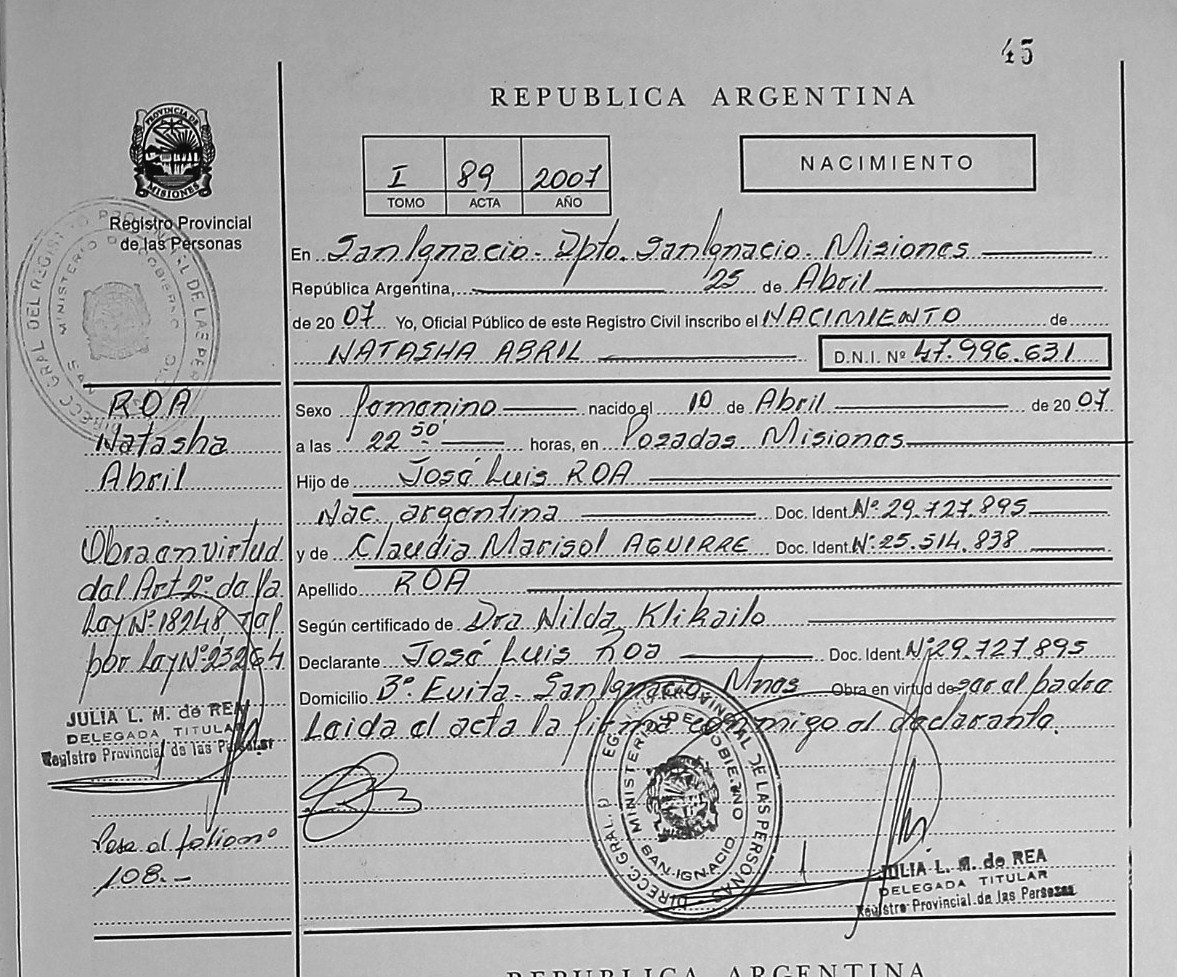 45
REPUBLICA ARGENTINA
PROVINCIA DE
MISIONES
Registro Provincial
de las Personas
I 89 2007
TOMO ACTA AÑO
NACIMIENTO
En San Ignacio - Dpto. San Ignacio - Misiones
República Argentina, 25 de Abril
de 2007 Yo, Oficial Público de este Registro Civil inscribo el NACIMIENTO de
NATASHA ABRIL D.N.I. Nº 47.996.631
Sexo femenino nacido el 10 de Abril de 2007
a las 22 50' horas, en Posadas Misiones
Hijo de José Luis ROA
Nac. argentina Doc. Ident. Nº 29.727.895
y de Claudia Marisol AGUIRRE Doc. Ident. Nº 25.514.838
Apellido ROA
Según certificado de Dra Nilda Klikailo
Declarante José Luis Roa Doc. Ident. Nº 29.727.895
Domicilio Bº Evita - San Ignacio Mnes Obra en virtud de ser el padre
Leida el acta la firma conmigo el declarante.
ROA
Natasha
Abril
Obra en virtud
del Art 2º de la
Ley Nº 18248,
por Ley Nº 23264
JULIA L. M. de REA
DELEGADA TITULAR
Registro Provincial de las Personas
Pasa al folio nº
108.-
DIRECC. GRAL. DEL REGISTRO PROVINCIAL DE LAS PERSONAS
MINISTERIO DE GOBIERNO
SAN IGNACIO
JULIA L. M. de REA
DELEGADA TITULAR
Registro Provincial de las Personas
REPUBLICA ARGENTINA